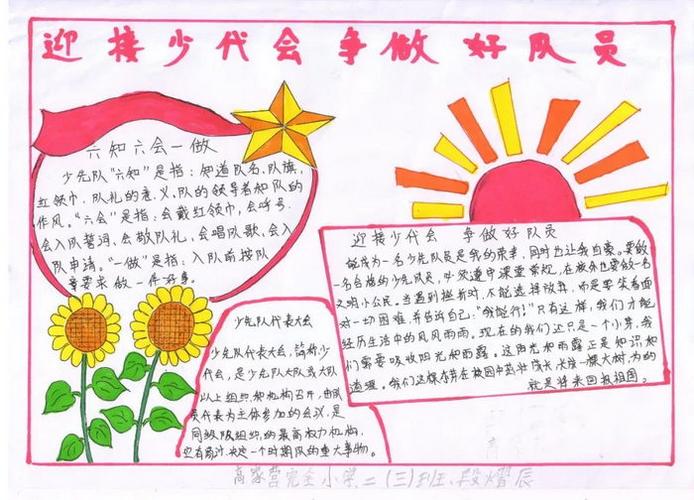 迎接少代会 争做好队员
六知六会一做
少先队“六知”是指:知道队名、队旗,
红领巾、队礼的意义、队的领导者和队的
作风。“六会”是指:会戴红领巾,会呼号,
会入队誓词、会敬队礼、会唱队歌、会入
队申请。“一做”是指:入队前按队
章要求做一件好事。
少先队代表大会
少先队代表大会,简称少
代会,是少先队大队或大队
以上组织和机构召开,由队
员代表为主体参加的会议,是
同级队组织的最高权力机构,
它有商讨、决定一个时期队的重大事物。
迎接少代会 争做好队员
能成为一名少先队员是我的荣幸,同时也让我自豪。要做
一名合格的少先队员,必须遵守课堂常规,在校外也要做一名
文明小公民。当遇到挫折时,不能选择放弃,而是要笑着面
对一切困难,并告诉自己:“我能行!”只有这样,我们才能
经历生活中的风风雨雨。现在的我们还只是一个小芽,我
们需要吸收阳光和雨露。这阳光和雨露正是知识和
道理。我们这棵小芽在校园中茁壮成长,长成一棵大树,为的
就是将来回报祖国。
高家营完全小学二(三)班、段熠辰